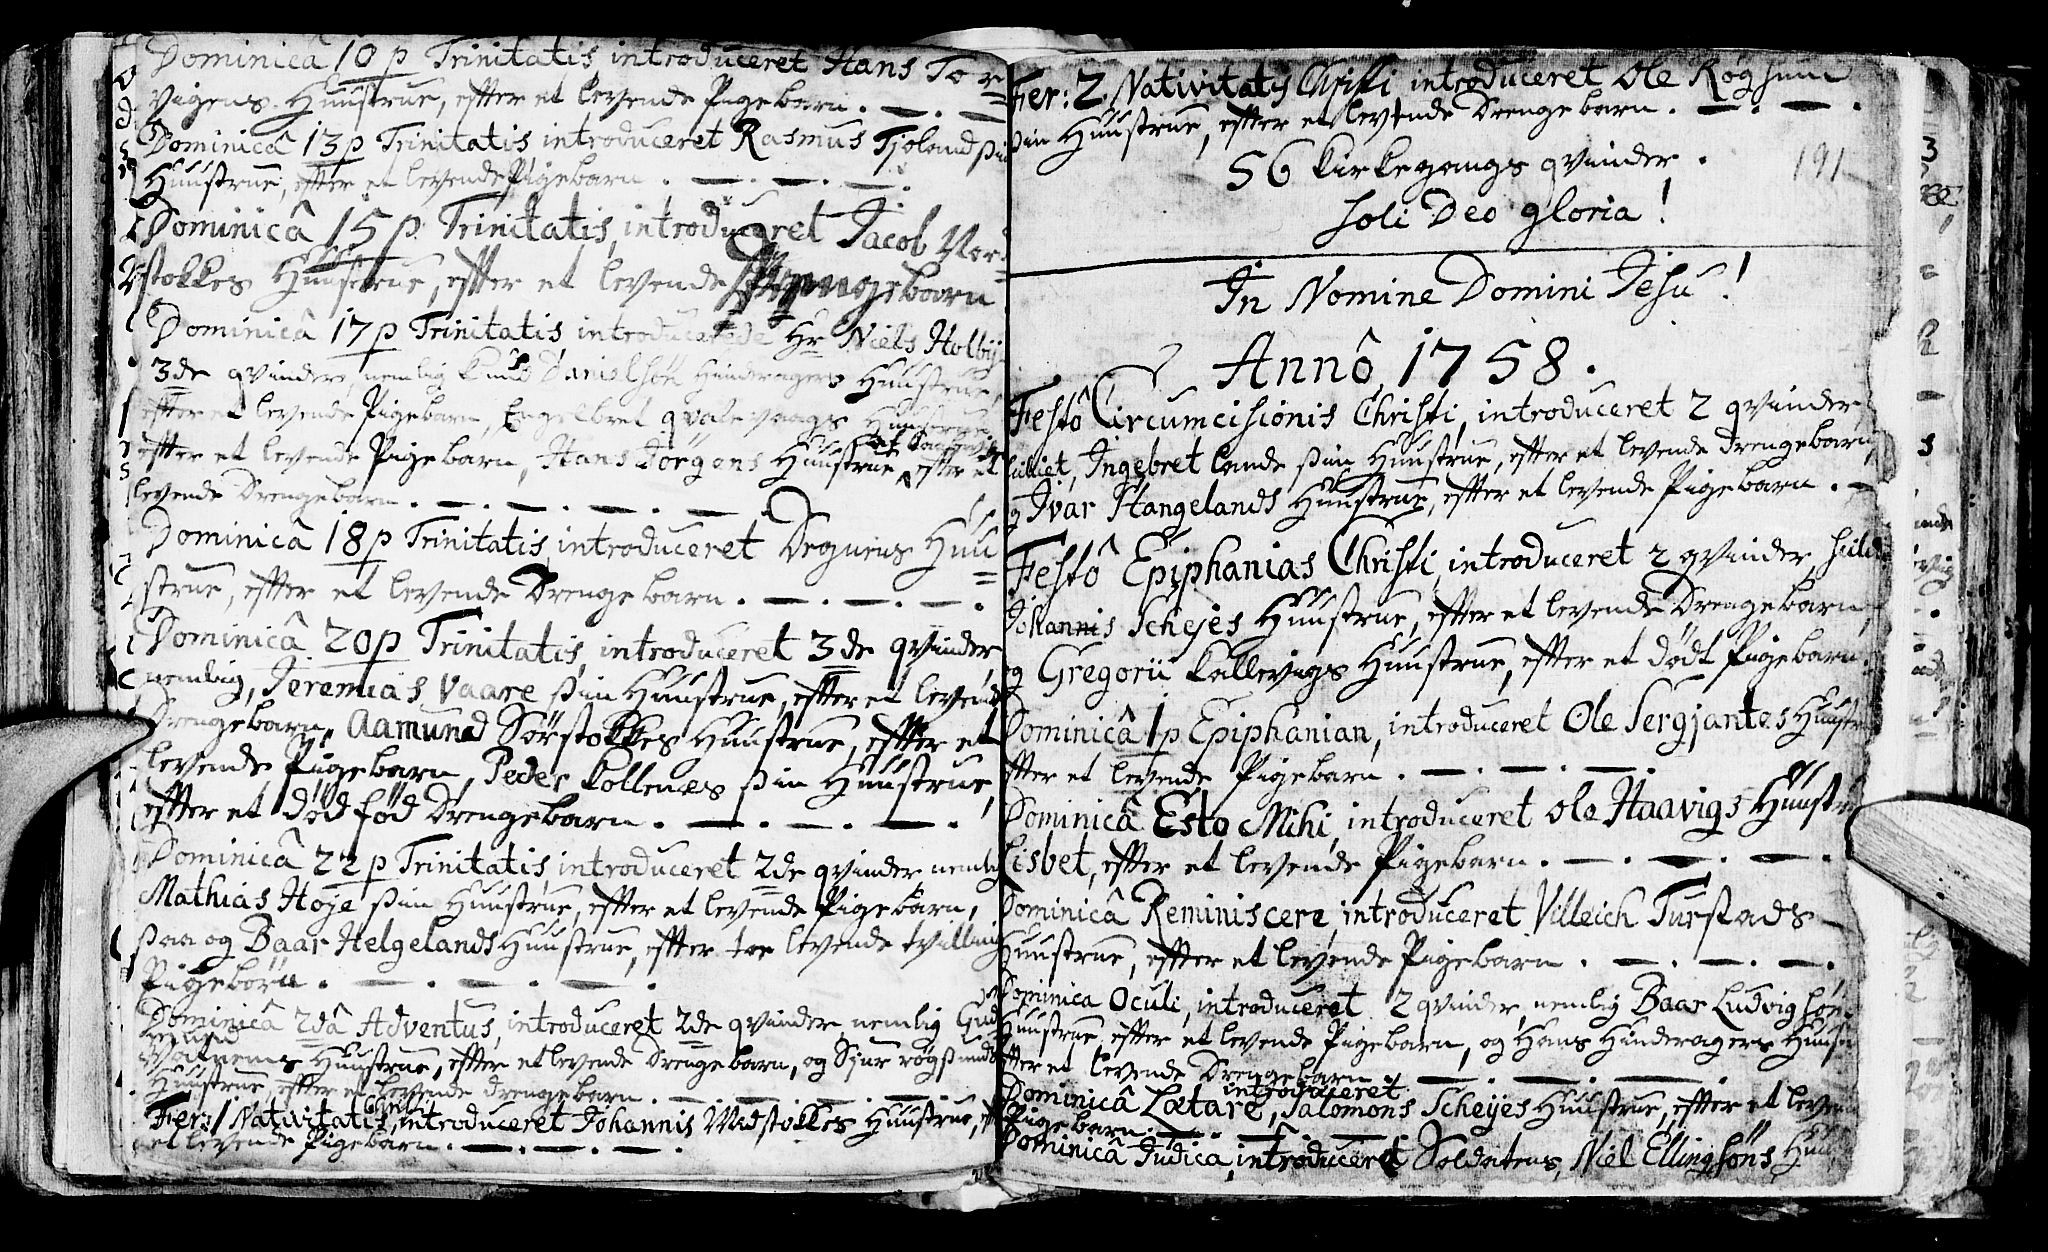 Dominicâ 10 p Trinitatis introduceret Hans Tor=
vigens Huustrue, effter et levende Pigebarn.
Dominicâ 13 p Trinitatis introduceret Rasmus Tjoland sin
Huustrue, effter et levende Pigebarn.
Dominicâ 15 p Trinitatis, introduceret Jacob Nor=
stokkes Huustrue, effter et levende Drengebarn
Dominicâ 17 p Trinitatis introducerede Hr Niels Holby
3de qvinder, nemlig Knud Danielsøn Hinderagers Huustrue,
effter et levende Pigebarn, Engelbret qvalevaags Huustrue
effter et levende Pigebarn, Hans Jørgens Huustrue, effter et
levende Drengebarn.
Dominicâ 18 p Trinitatis, introduceret Degnens Huu=
strue, effter et levende Drengebarn.
Dominicâ 20 p Trinitatis, introduceret 3de qvinder,
nemlig, Jeremias Vaare sin Huustrue, effter et levende
Drengebarn, Aamund Sørstokkes Huustrue, effter et
levende Pigebarn, Peder Kollenæs sin Huustrue,
effter et dødfød Drengebarn.
Dominicâ 22 p Trinitatis, introduceret 2de qvinder nemlig
Mathias Høje sin Huustrue, effter et levende Pigebarn,
saa og Baar Helgelands Huustrue, effter toe levende tvilling
Pigebørn.
Dominicâ 2dâ Adventus, introduceret 2de qvinder nemlig Gud
mund
Vatnems Huustrue, effter et levende Drengebarn, og Sjur røgsunds
Huustrue effter et levende drengebarn.
Fer: 1 Nativitatis Christi, introduceret Johannis Midstokkes Huustrue, eff
et levende Pigebarn.
Fer: 2 Nativitatis Christi introduceret Ole Røgsund
sin Huustrue, effter et levende Drengebarn.
56 Kirkegangs qvinder.
191
Soli Deo gloria!
In Nomine Domini Jesu!
Annô 1758.
Festô Circumcisionis Christi, introduceret 2 qvinder
Ingebret Lande sin Huustrue, effter et levende drengebarn,
og Ivar Stangelands Huustrue, effter et levende Pigebarn.
Festô Epiphanias Christi, introduceret 2 qvinder,
Johannis Schejes Huustrue, effter et levende Drengebarn,
og Gregorii Kallevigs Huustrue, effter et dødt Pigebarn.
Dominicâ 1 p Epiphanian, introduceret Ole Sergjantes Huustru
effter et levende Pigebarn.
Dominicâ Esto Mihi, introduceret Ole Haavigs Huustru
Lisbet, effter et levende Pigebarn.
Dominicâ Reminiscere, introduceret Villeich Turstads
Huustrue, effter et levende Pigebarn.
Dominica Oculi, introduceret 2 qvinder, nemlig Baar Ludvigsøns
Huustrue effter et levende Pigebarn, og Hans Hinderagers Huus
effter et levende Drengebarn.
introduceret
Dominicâ Lætare, Salomons Scheyes Huustrue, effter et levende
Pigebarn.
Dominicâ Judica, introduceret Soldatens, Niel Ellingsøns, Huu